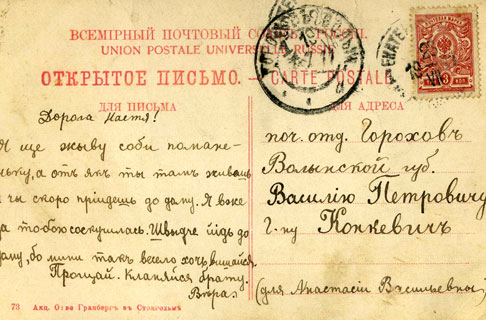 ВСЕМІРНЫЙ ПОЧТОВЫЙ СОЮЗЪ. РОССІЯ.
UNION POSTALE UNIVERSELLE. RUSSIE
ОТКРЫТОЕ ПИСЬМО. — CARTE POSTALE.
ДЛЯ ПИСЬМА
Дорога Настя!
Я ще жыву соби помале-
ньку, а отъ якъ ты тамъ живешь
и чы скоро пріидешь до дому. Я вже
за тобою соскучилась. Швыдче йідь до
дому, бо мини такъ весело хочь вишайся.
Прощай. Кланяйся брату.
Вѣра
73 Акц. О-тво Гранбергъ въ Стокгольмѣ
ДЛЯ АДРЕСА
поч. отд. Гороховъ
Волынской губ.
Василію Петровичу
Г-ну Конкевичъ
(для Анастасіи Васильевны)